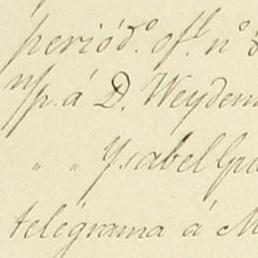 periód.º of.l nº
n/p. á D. Weyden
" " Ysabel Gu
telégrama á M